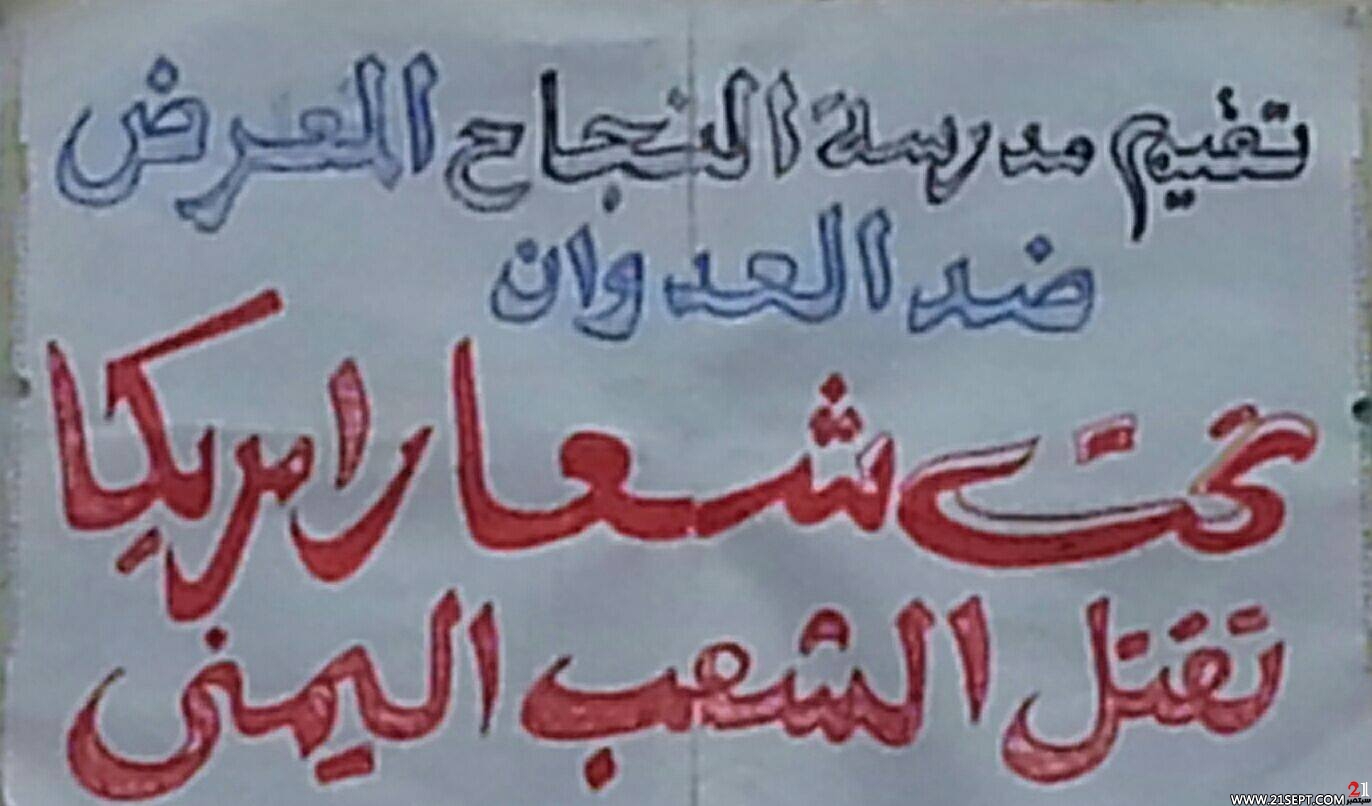 تقيم مدرسة النجاح المعرض
ضد العدوان
تحت شعار امريكا
تقتل الشعب اليمني
21
WWW.21SEPT.COM